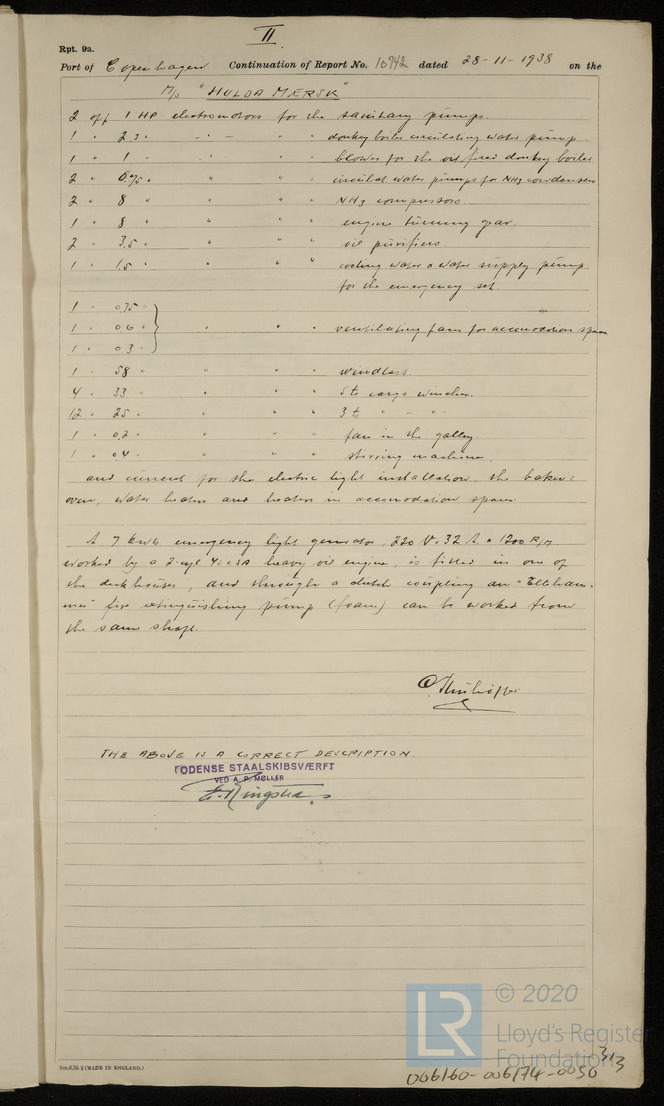 II
Rpt. 9a.
Port of Copenhagen Continuation of Report No. 10942 dated 28-11-1938 on the
M/s "HULDA MÆRSK"
2 off 1 HP electromotors for the sanitary pumps.
1 " 2.3 " - " - " " donkey boiler circulating water pump
1 " 1 " " " " blower for the oil fired donkey boiler
2 " 0.75 " " " " circulat. water pumps for NH3 condensers
2 " 8 " " " " NH3 compressors.
1 " 8 " " " " engine turning gear.
2 " 3.5 " " " " oil purifiers.
1 " 1.5 " " " " cooling water & water supply pump
for the emergency set.
1 " 0.75 "
1 " 0.6 " } " " " ventilating fans for accomodation spaces
1 " 0.3 "
1 " 58 " " " " windlass.
4 " 33 " " " " 5 ts cargo winches.
12 " 25 " " " " 3 ts " - " -
1 " 0.2 " " " " fan in the galley.
1 " 0.4 " " " " stirring machine.
and current for the electric light installation, the baker:
oven, water heaters and heaters in accomodation spaces
A 7 kws emergency light generator, 220 V. 32 A. 1200 R/M
worked by a 2-cyl 4SCSA heavy oil engine, is fitted in one of
the deckhouses, and through a clutch coupling an "Elleham-
mer" fire extinguishing pump (foam) can be worked from
the same shaft.
THE ABOVE IS A CORRECT DESCRIPTION.
ODENSE STAALSKIBSVÆRFT
VED A. P. MØLLER
E. Ringsted
5m,6,38. 2 (MADE IN ENGLAND.)
LR © 2020
Lloyd's Register
Foundation
313
006160-006174-0050